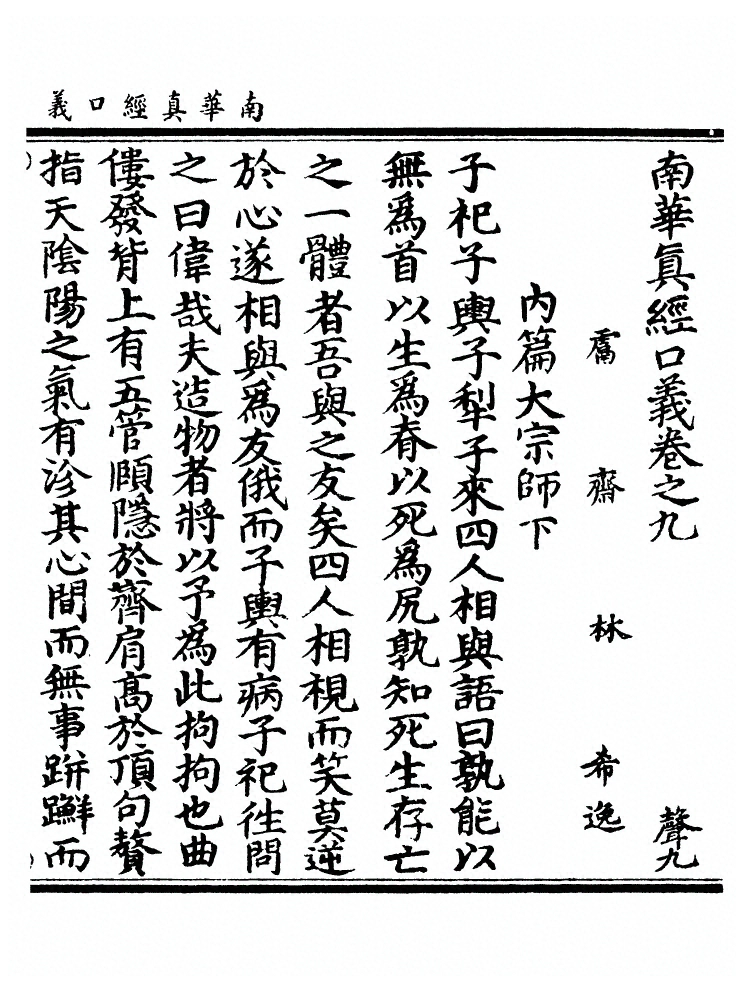 南華真經口義
南華真經口義卷之九 聲九
鬳齋林希逸
內篇大宗師下
子祀子輿子犁子來四人相與語曰孰能以
無爲首以生爲脊以死爲尻孰知死生存亡
之一體者吾與之友矣四人相視而笑莫逆
於心遂相與爲友俄而子輿有病子祀徃問
之曰偉哉夫造物者將以予爲此拘拘也曲
僂發背上有五管頤隱於齊肩高於頂句贅
指天陰陽之氣有沴其心間而無事跰𨇤而